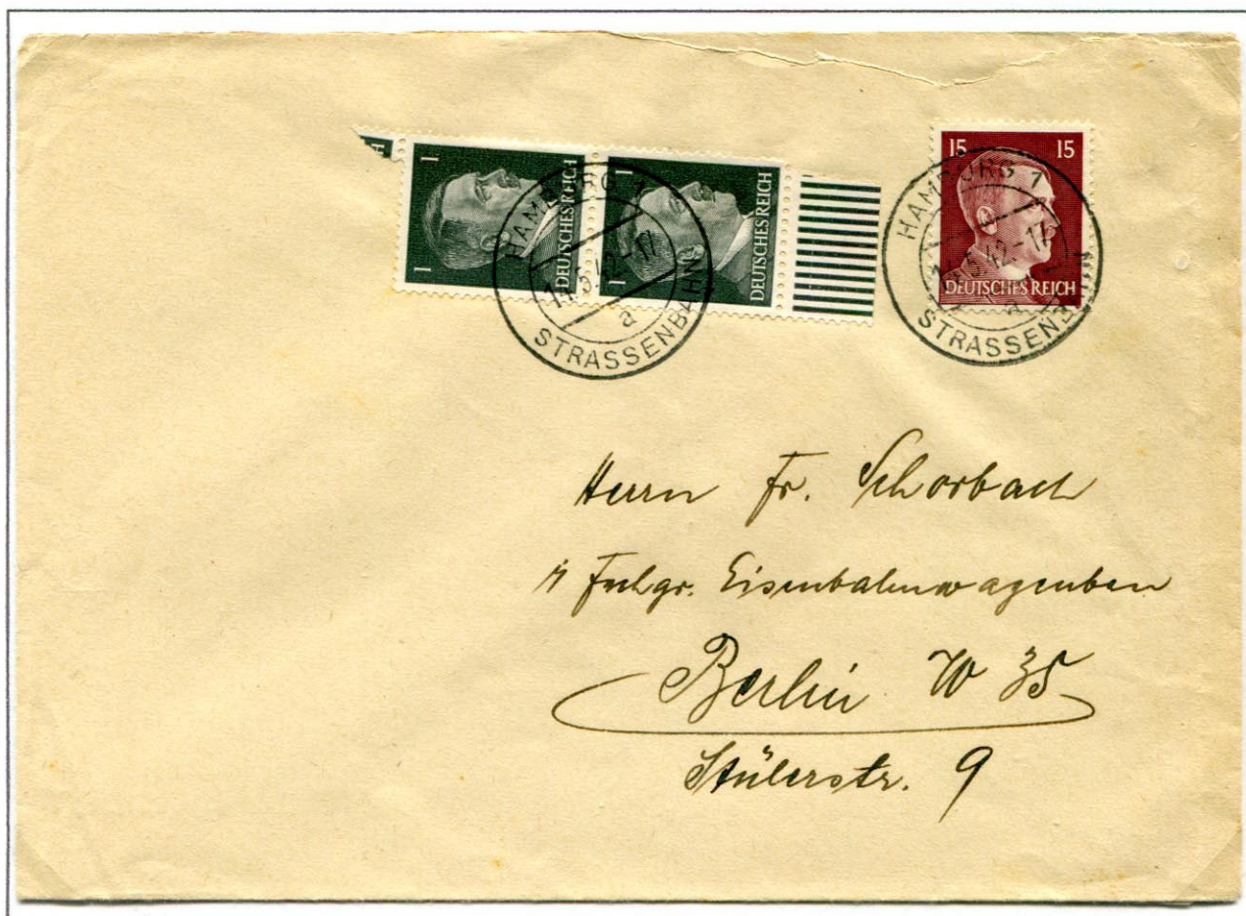 1
1
DEUTSCHES REICH
1
1
DEUTSCHES REICH
HAMBURG 1
.5.42-17
a
STRASSENBAHN
15 15
DEUTSCHES REICH
HAMBURG 1
.5.42-17
a
STRASSENB
Herrn Fr. Schorbach
Fachgr. Eisenbahnwagenbau
Berlin W 35
Stülerstr. 9